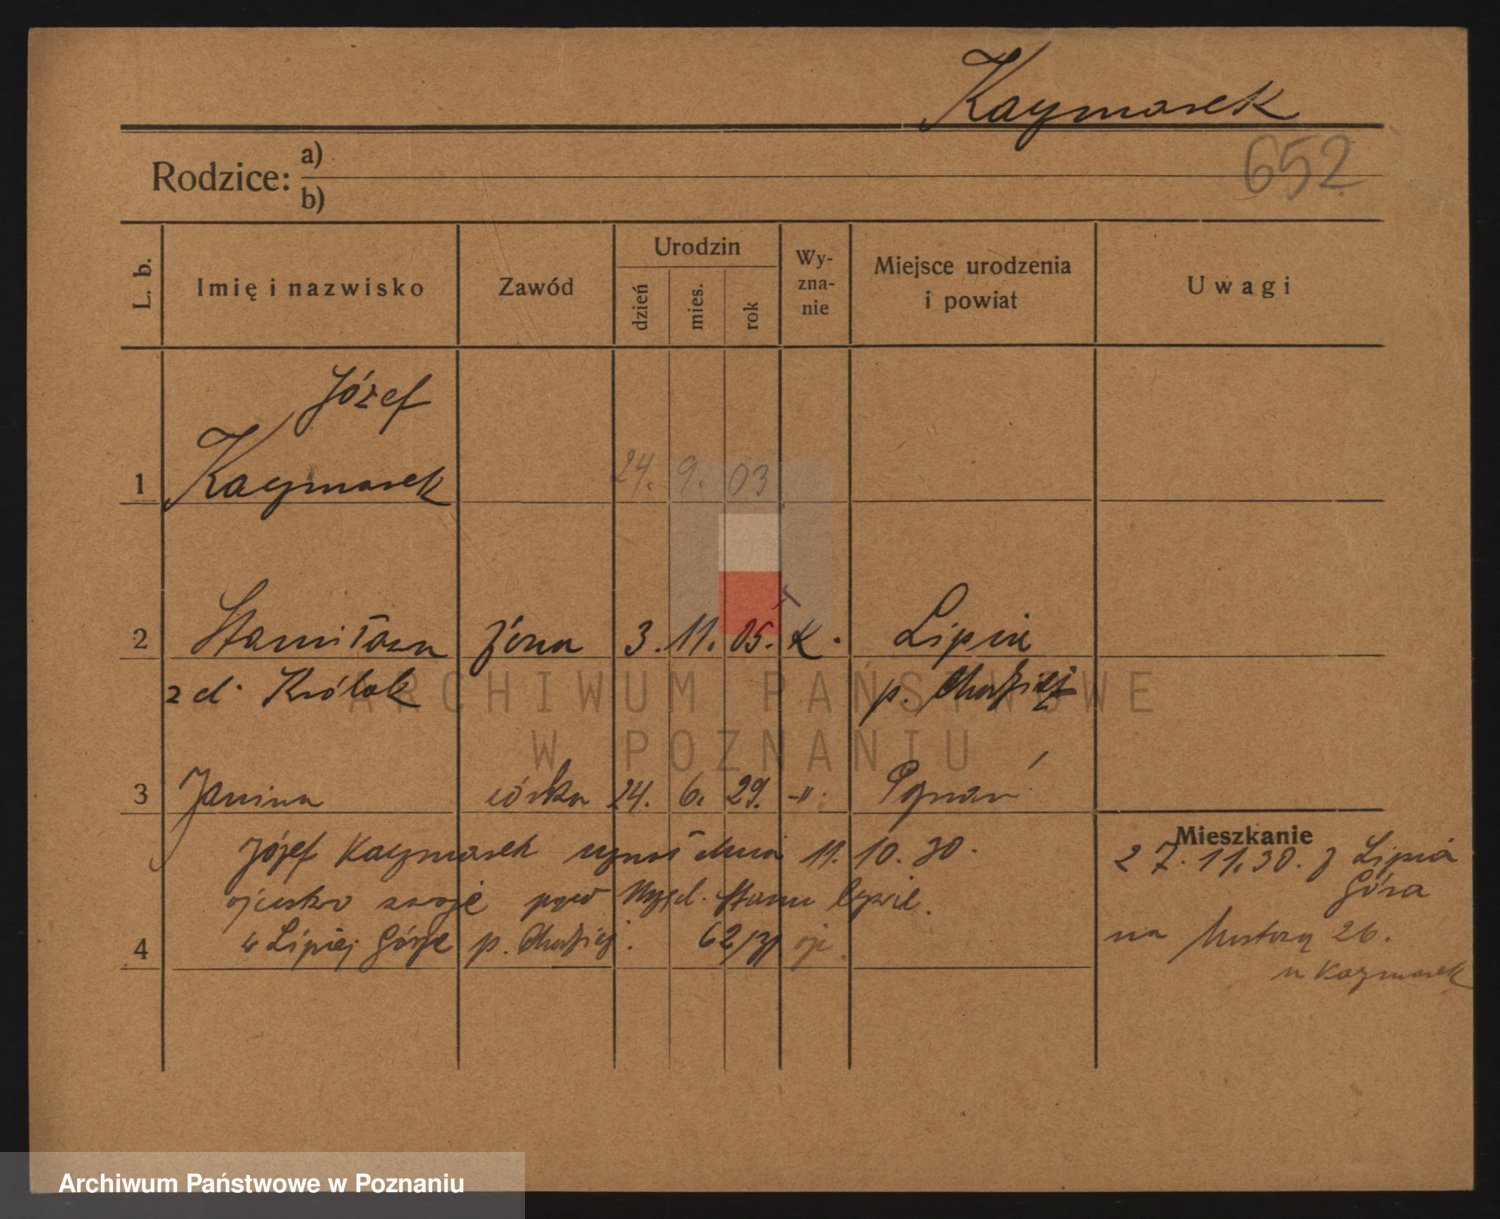 Kaczmarek
652
Rodzice: a)
b)
L. b. Imię i nazwisko Zawód Urodzin dzień mies. rok Wy-zna-nie Miejsce urodzenia i powiat Uwagi
Józef
1 Kaczmarek 24. 9. 03
2 Stanisława żona 3. 11. 05. k. Lipia
z d. Królak p. Chodzież
ARCHIWUM PAŃSTWOWE
W POZNANIU
3 Janina córka 24. 6. 29. -"- Poznań
Mieszkanie
Józef Kaczmarek uznał dnia 11. 10. 30.
ojcostwo swoje przed Urzęd. Stanu Cywil.
4 w Lipiej Górze p. Chodzież. 62/31
27. 11. 30. z Lipia
Góra
na 26.
u Kaczmarek
Archiwum Państwowe w Poznaniu